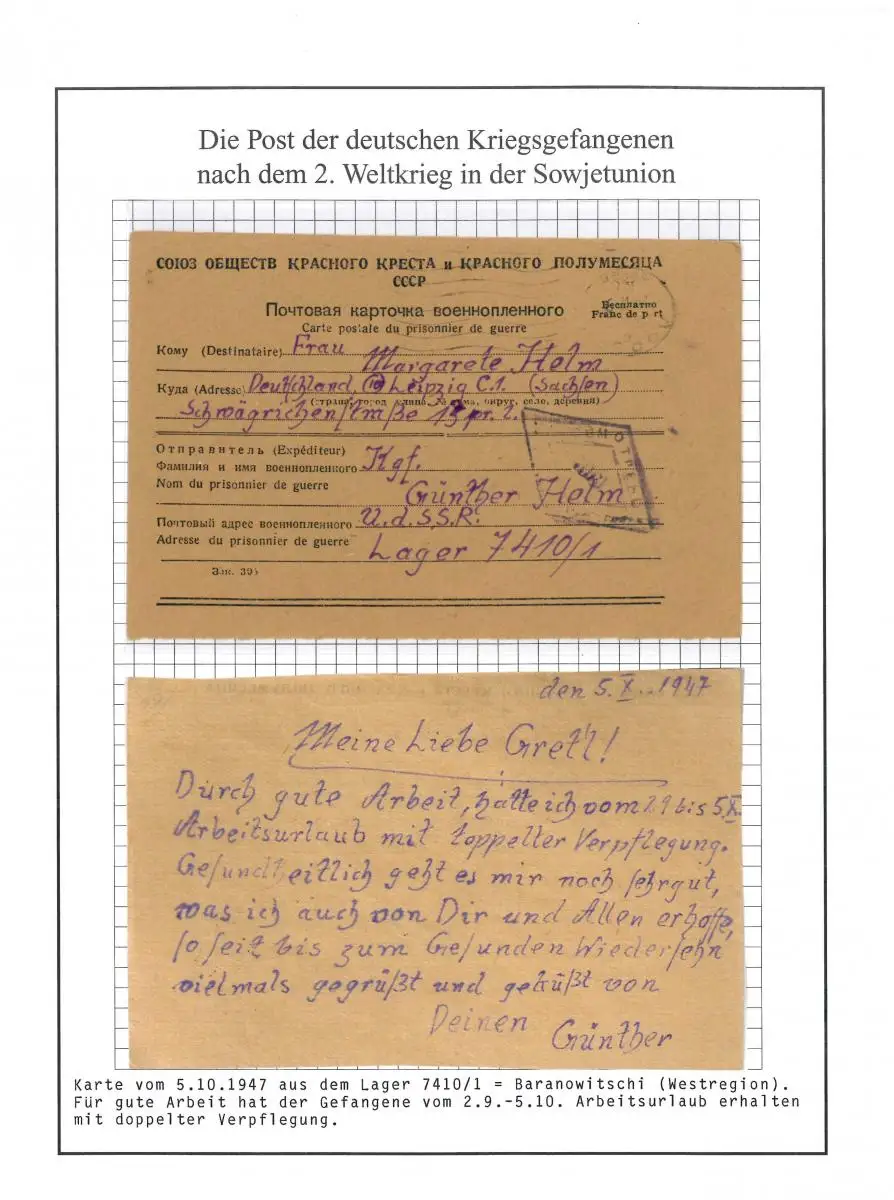 Die Post der deutschen Kriegsgefangenen
nach dem 2. Weltkrieg in der Sowjetunion
СОЮЗ ОБЩЕСТВ КРАСНОГО КРЕСТА и КРАСНОГО ПОЛУМЕСЯЦА
СССР
Почтовая карточка военнопленного
Бесплатно
Carte postale du prisonnier de guerre
Franc de p rt
Кому (Destinataire) Frau
Margarete Helm
Куда (Adresse) Deutschland, (10) Leipzig C.1. (Sachsen)
(страна, город, улица, № дома, округ, село, деревня)
Schwägrichenstraße 13 pr. l.
Отправитель (Expéditeur)
Фамилия и имя военнопленного Kgf.
Nom du prisonnier de guerre
Günther Helm
Почтовый адрес военнопленного U.d.S.S.R.
Adresse du prisonnier de guerre Lager 7410/1
Зак. 395
den 5.X. 1947
Meine Liebe Gretl!
Durch gute Arbeit, hatte ich vom 2.9 bis 5.X.
Arbeitsurlaub mit toppelter Verpflegung.
Gesundheitlich geht es mir noch sehrgut,
was ich auch von Dir und Allen erhoffe,
so seit bis zum Gesunden Wiedersehn
vielmals gegrüßt und geküßt von
Deinen Günther
Karte vom 5.10.1947 aus dem Lager 7410/1 = Baranowitschi (Westregion).
Für gute Arbeit hat der Gefangene vom 2.9.-5.10. Arbeitsurlaub erhalten
mit doppelter Verpflegung.